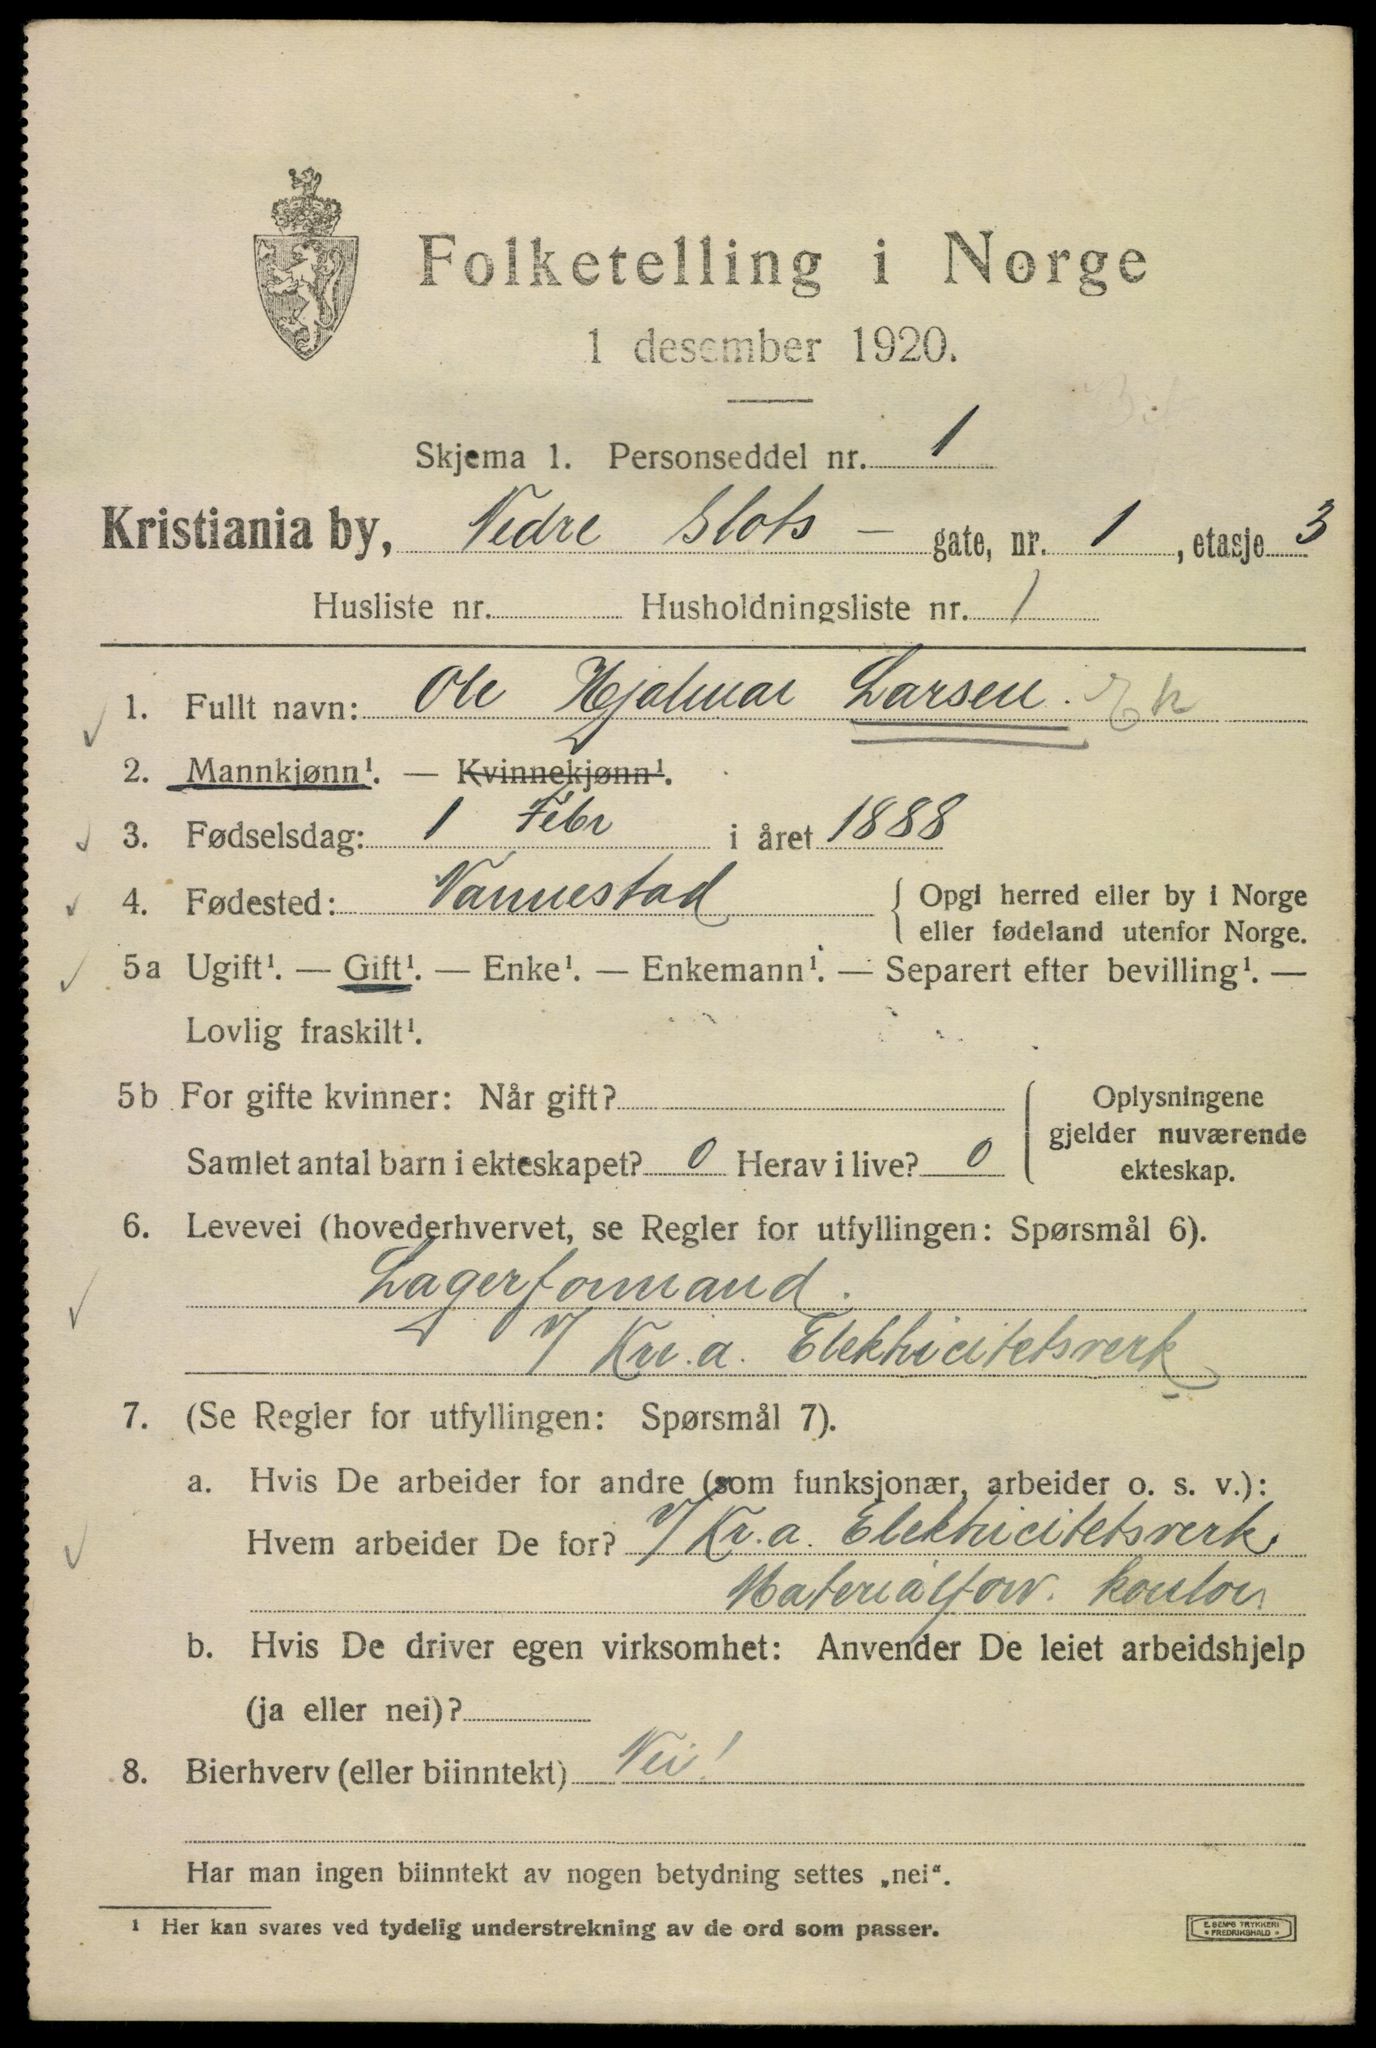 Folketelling i Norge
1 desember 1920.
Skjema 1. Personseddel nr. 1
Kristiania by, Nedre Slots - gate, nr. 1, etasje 3
Husliste nr. Husholdningsliste nr. 1
1. Fullt navn: Ole Hjalmar Larsen.
2. Mannkjønn¹. — Kvinnekjønn¹.
3. Fødselsdag: 1 Febr i året 1888
4. Fødested: Nannestad { Opgi herred eller by i Norge
eller fødeland utenfor Norge.
5a Ugift¹. — Gift¹. — Enke¹. — Enkemann¹. — Separert efter bevilling¹. —
Lovlig fraskilt¹.
5b For gifte kvinner: Når gift? { Oplysningene
gjelder nuværende
Samlet antal barn i ekteskapet? 0 Herav i live? 0 ekteskap.
6. Levevei (hovederhvervet, se Regler for utfyllingen: Spørsmål 6).
Lagerformand.
v/ Kr.a. Elektricitetsverk
7. (Se Regler for utfyllingen: Spørsmål 7).
a. Hvis De arbeider for andre (som funksjonær, arbeider o. s. v.):
Hvem arbeider De for? v/ Kr.a. Elektricitetsverk
Materialforv. kontor
b. Hvis De driver egen virksomhet: Anvender De leiet arbeidshjelp
(ja eller nei)?
8. Bierhverv (eller biinntekt) Nei!
Har man ingen biinntekt av nogen betydning settes „nei“.
¹ Her kan svares ved tydelig understrekning av de ord som passer.
E. SEMS TRYKKERI
• FREDRIKSHALD •